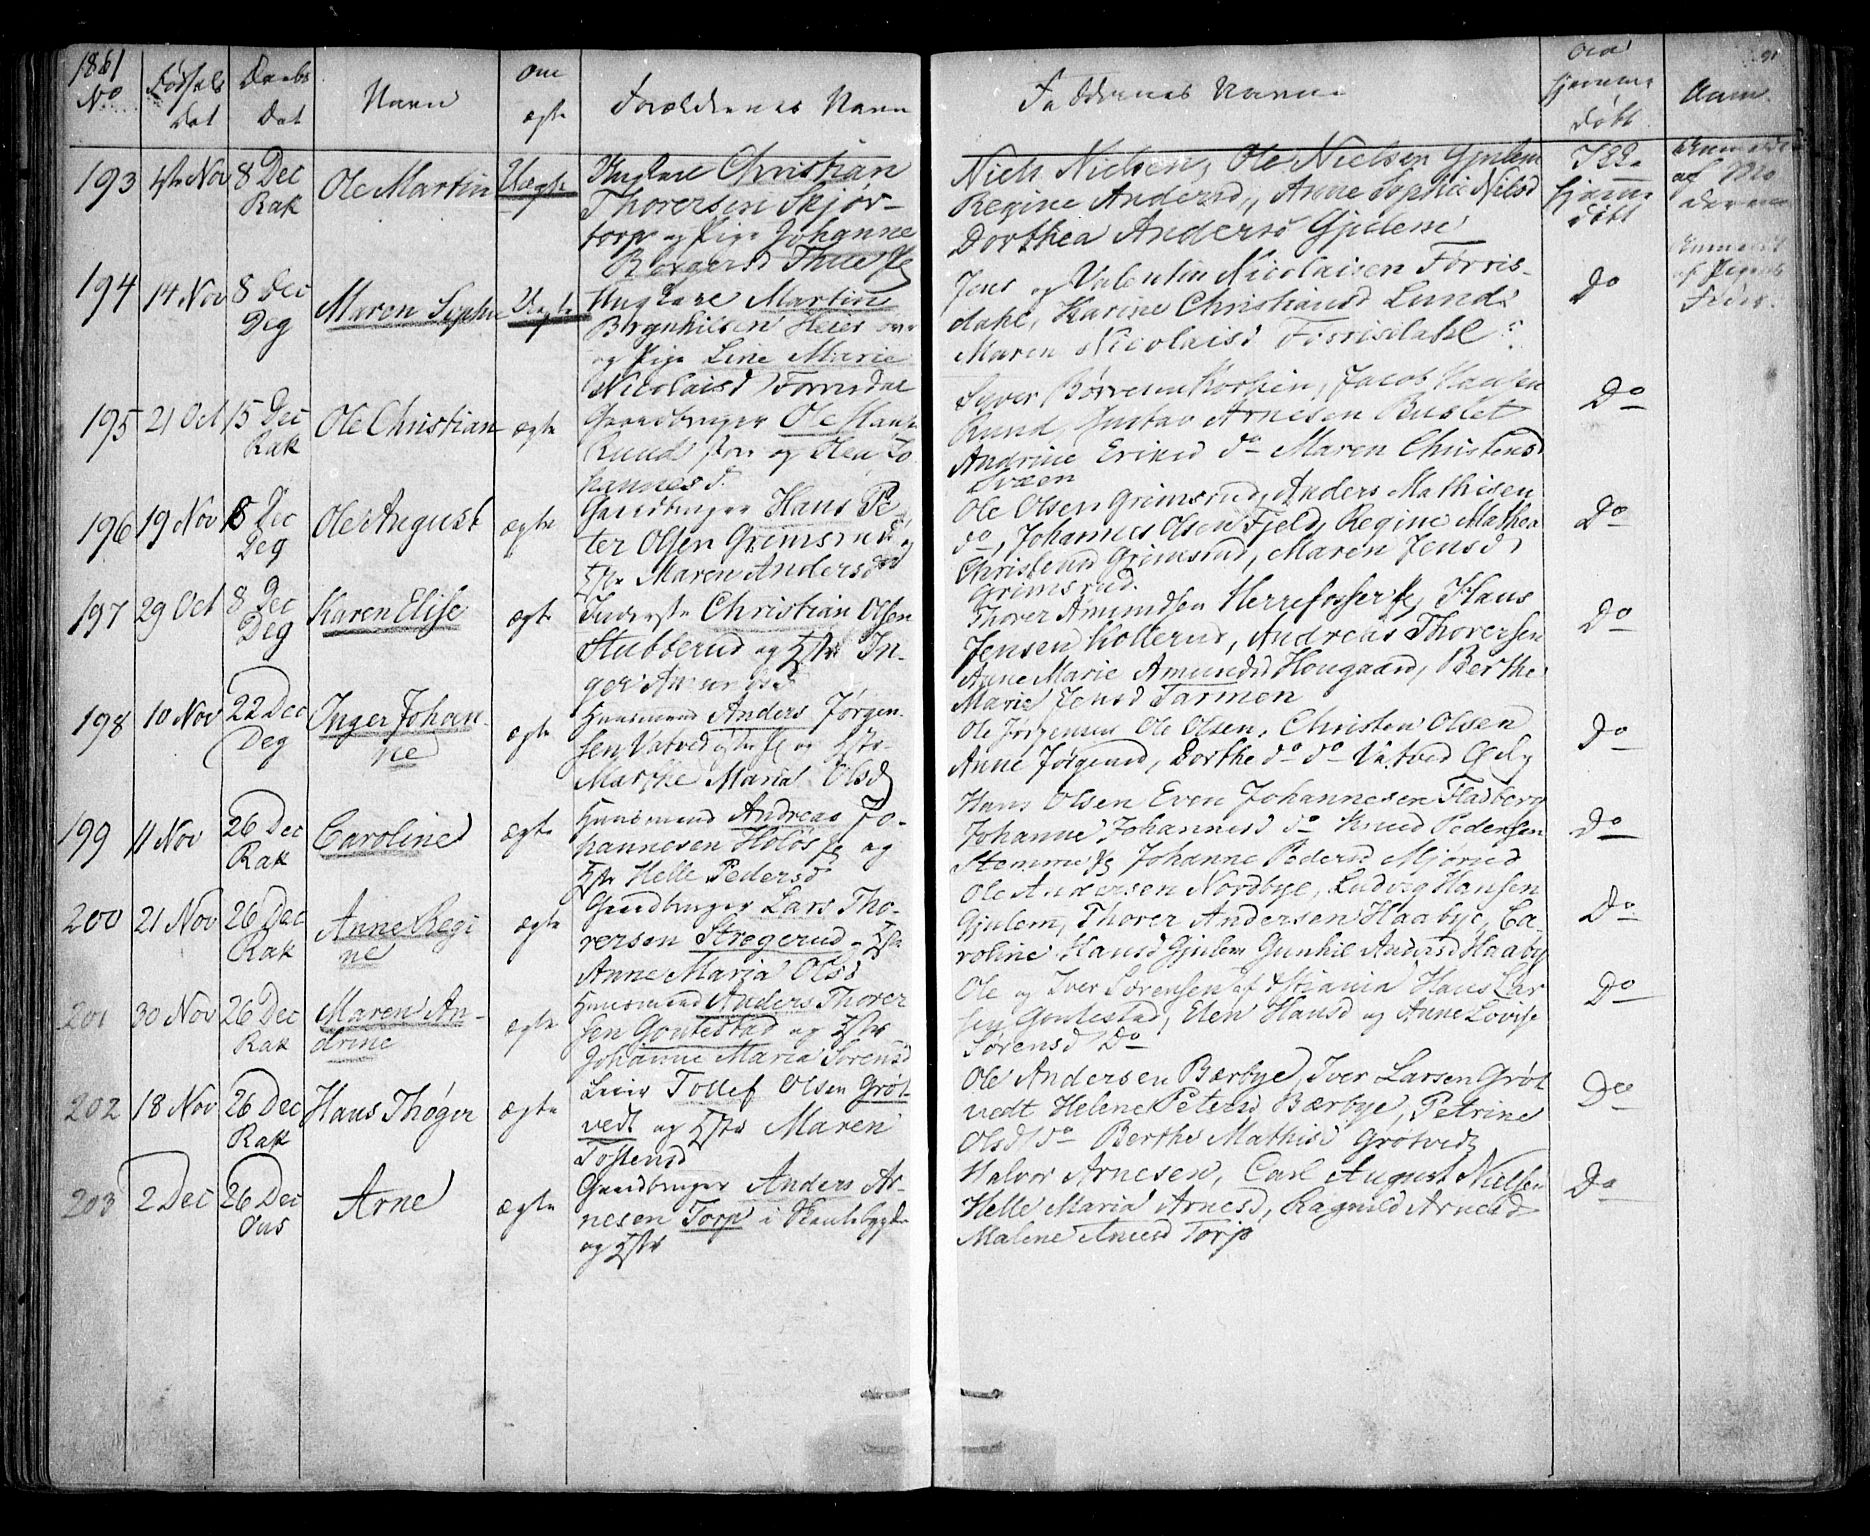 1861
No
Fødsels
Dat
Daabs
Dat
Navn
Om
ægte
Forældrenes Navn
Faddernes Navne
Om
hjemme
døbt
Anm.
193
Nov
8 Dec
Rak
Ole Martin
Uægte
Ungkarl Christian
Thoversen Skjør-
torp og Pige Johanne
Borgersd Thue
Niels Nielsen, Ole Nielsen Gjulem
Regine Andersd, Anne Sophie Nilsd
Dorthea Andersd Gjulem
hjemme
døbt
af Mo
deren
194
14 Nov
8 Dec
Deg
Maren Sophie
Uægte
Ungkarl Martin
Brynhilsen Heier
og Pige Line Marie
Nicolaisd Forrisdal
Jens og Valentin Nicolaisen Forris-
dahl, Karine Christiansd Lund
Maren Nicolaisd Forrisdahl
Do
af Pigens
195
21 Oct
15 Dec
Rak
Ole Christian
ægte
Gaardbruger Ole
Ruud og Jo
hannesd
Syver Jacob Hansen
Ruud, Gustav Arnesen Buslet
Andrine Eriksd do Maren Christensd
Svæen
Do
196
19 Nov
8 Dec
Deg
Ole August
ægte
Gaardbruger Hans Pe-
ter Olsen Grimsrud og
Hstr Maren Andersd
Ole Olsen Grimsrud, Anders Mathisen
do, Johannes Olsen Fjeld, Regine Mathea
Christensd Grimsrud, Maren Jensd
Grimsrud
Do
197
29 Oct
8 Dec
Deg
Karen Elise
ægte
Inderste Christian Olsen
Stubberud og Hstr In-
ger
Thorer Amundsen Herrefosser, Hans
Jensen Kollerud, Andreas Thoversen
Anne Marie Amundsd Hougaard, Berthe
Marie Jensd Tarmen
Do
198
10 Nov
22 Dec
Deg
Inger Johan-
ne
ægte
Huusmand Anders Jørgen-
sen Vatvedt og Hstr
Marthe Maria Olsd
Ole Jørgensen Ole Olsen, Christen Olsen
Anne Jørgensd, Berthe do do Vatved
Do
199
11 Nov
26 Dec
Rak
Caroline
ægte
Huusmand Andreas Jo-
hannesen Holøs og
Hstr Helle Pedersd
Hans Olsen Even Johannesen Fladberg
Johanne Johannesd do Knud Pedersen
Stemme Johanne Pedersd Mjørud
Do
200
21 Nov
26 Dec
Rak
Anne Regi
ne
ægte
Gaardbruger Lars Tho-
rersen Strøgerud - Hstr
Anne Maria Olsd
Ole Andersen Nordbye, Ludvig Hansen
Gjulem, Thorer Andersen Haabye, Ca-
roline Hansd Gjulem Gunhil Andersd Haaby
Do
201
30 Nov
26 Dec
Rak
Maren An-
drine
ægte
Huusmand Anders Thorer
sen Goutestad og Hstr
Johanne Maria Sørensd
Ole og Iver Sørensen af Hans Lar
sen Goutestad, Elen Hansd og Anne Lovise
Sørensd Do
Do
202
18 Nov
26 Dec
Rak
Hans Thøger
ægte
Leier Tollef Olsen Grøt
vedt og Hstr Maren
Tostensd
Ole Andersen Bærbye, Iver Larsen Grøt
vedt Helene Petersd Bærbye, Petrine
Olsd do Berthe Mathisd Grøtvedt
Do
203
2 Dec
26 Dec
Arne
ægte
Gaardbruger Anders Ar-
nesen Torp i
og Hstr
Halvor Arnesen, Carl August Nielsen
Helle Maria Arnesd, Ragnild Arnesd
Malene Arnesd Torp
Do